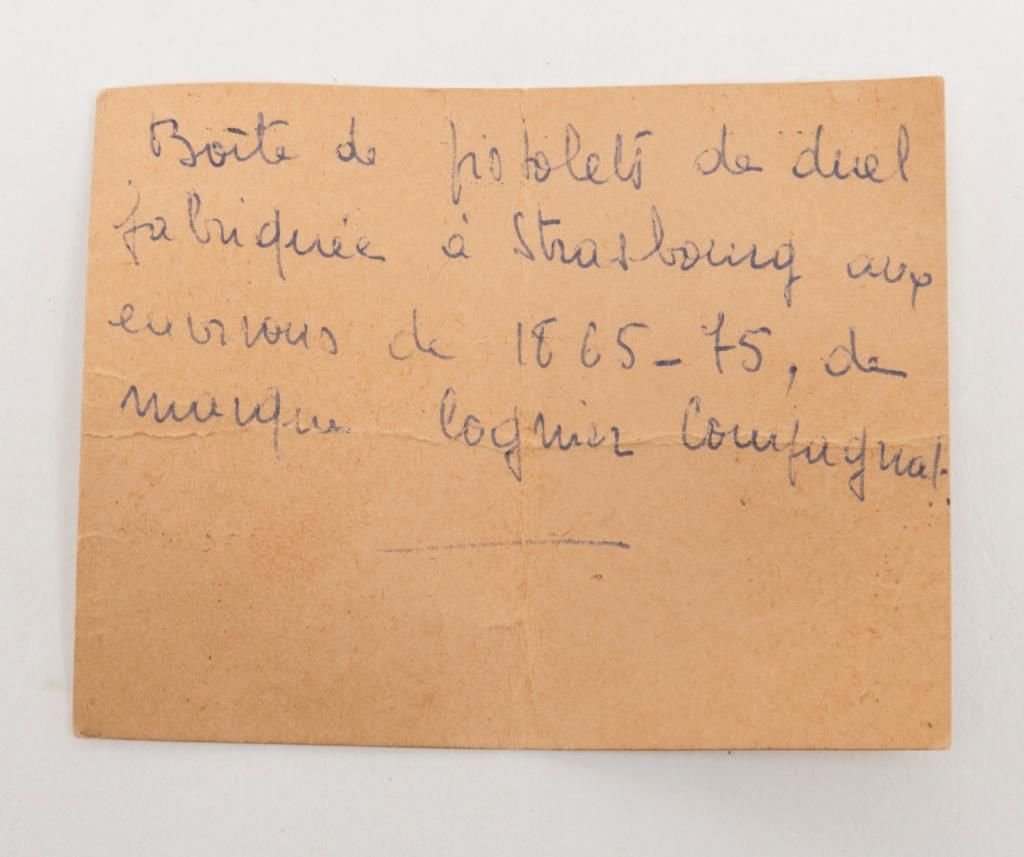 Boîte de pistolets de duel
fabriquée à Strasbourg aux
environs de 1865-75, de
marque Cognier Compagnat.